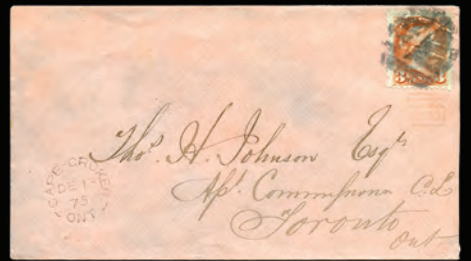 Thos. H. Johnson Esqr
Asst. Commissiona C.L.
Toronto
Ont
CAPE-CROKER
DE 1
75
ONT